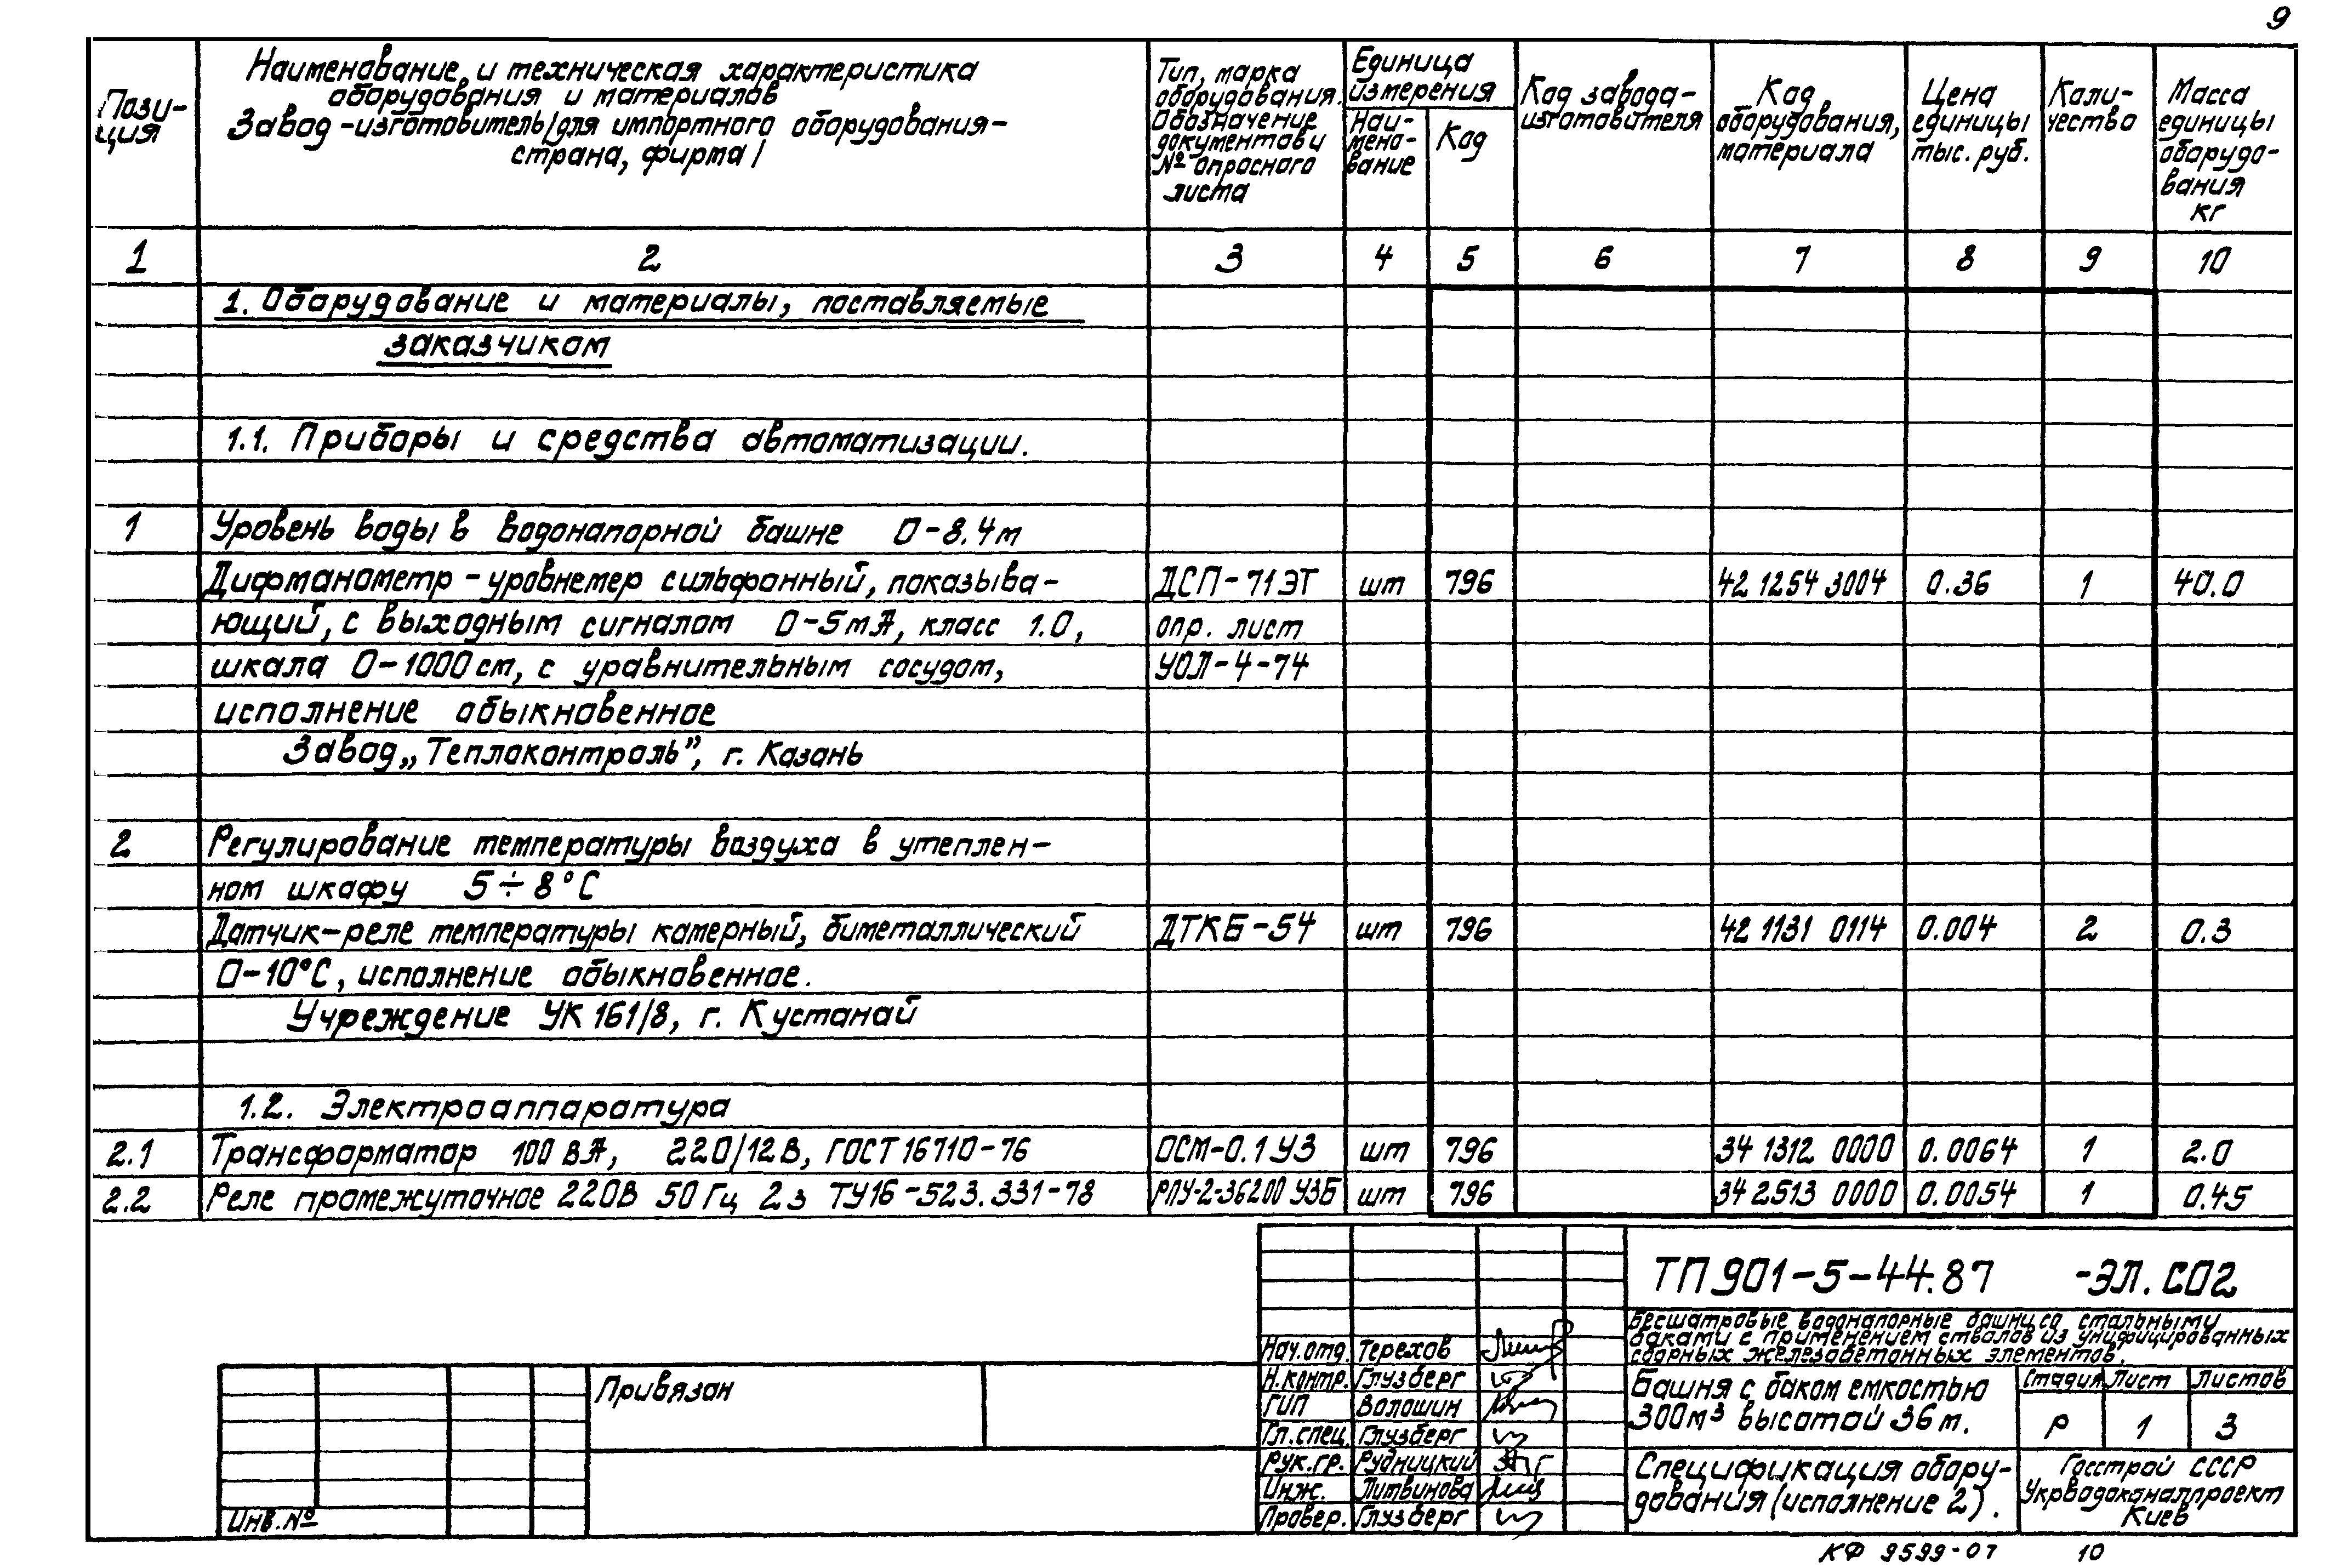 9
Пози-
ция
Наименование и техническая характеристика
оборудования и материалов
Завод-изготовитель/для импортного оборудования-
страна, фирма/
Тип, марка
оборудования.
Обозначение
документа и
№ опросного
листа
Единица
измерения
Наи-
мено-
вание
Код
Код завода-
изготовителя
Код
оборудования,
материала
Цена
единицы
тыс. руб.
Коли-
чество
Масса
единицы
оборудо-
вания
кг
1 2 3 4 5 6 7 8 9 10
1. Оборудование и материалы, поставляемые
заказчиком
1.1. Приборы и средства автоматизации.
1 Уровень воды в водонапорной башне 0-8.4м
Дифманометр-уровнемер сильфонный, показыва- ДСП-71ЭТ шт 796 42 1254 3004 0.36 1 40.0
ющий, с выходным сигналом 0-5mA, класс 1.0, опр. лист
шкала 0-1000см, с уравнительным сосудом, УОЛ-4-74
исполнение обыкновенное
Завод „Теплоконтроль”, г. Казань
2 Регулирование температуры воздуха в утеплен-
ном шкафу 5÷8°С
Датчик-реле температуры камерный, биметаллический ДТКБ-54 шт 796 42 1131 0114 0.004 2 0.3
0-10°С, исполнение обыкновенное.
Учреждение УК 161/8, г. Кустанай
1.2. Электроаппаратура
2.1 Трансформатор 100 ВА, 220/12В, ГОСТ 16710-76 ОСМ-0.1 У3 шт 796 34 1312 0000 0.0064 1 2.0
2.2 Реле промежуточное 220В 50 Гц 2з ТУ16-523.331-78 РПУ-2-36200 У3Б шт 796 34 2513 0000 0.0054 1 0.45
ТП 901-5-44.87 -ЭЛ.СО2
Бесшатровые водонапорные башни со стальными
баками с применением стволов из унифицированных
сборных железобетонных элементов.
Нач.отд. Терехов
Н.контр. Глузберг
ГИП Волошин
Гл.спец. Глузберг
Рук.гр. Рудницкий
Инж. Литвинова
Провер. Глузберг
Башня с баком емкостью
300м³ высотой 36м.
Стадия Лист Листов
Р 1 3
Спецификация обору-
дования (исполнение 2).
Госстрой СССР
Укрводоканалпроект
Киев
Привязан
Инв.№
КФ 9599-07 10